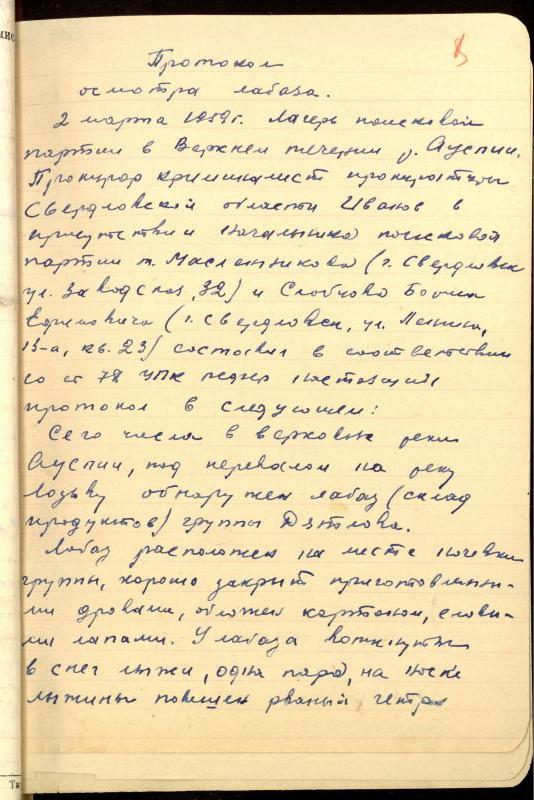 8
Протокол
осмотра лабаза.
2 марта 1959г. Лагерь поисковой
партии в Верхнем течении р. Ауспии.
Прокурор криминалист прокуратуры
Свердловской области Иванов в
присутствии начальника поисковой
партии т. Масленникова (г. Свердловск
ул. Заводская, 32) и Слобцова Бориса
Ефимовича (г. Свердловск, ул. Ленина,
13-а, кв. 23) составил в соответствии
со ст 78 УПК РСФСР настоящий
протокол в следующем:
Сего числа в верховьях реки
Ауспии, под перевалом на реку
Лозьву обнаружен лабаз (склад
продуктов) группы Дятлова.
Лабаз расположен на месте ночевки
группы, хорошо закрыт приготовленны-
ми дровами, обложен картоном, еловы-
ми лапами. У лабаза воткнуты
в снег лыжи, одна пара, на носке
лыжины повешен рваный гетра